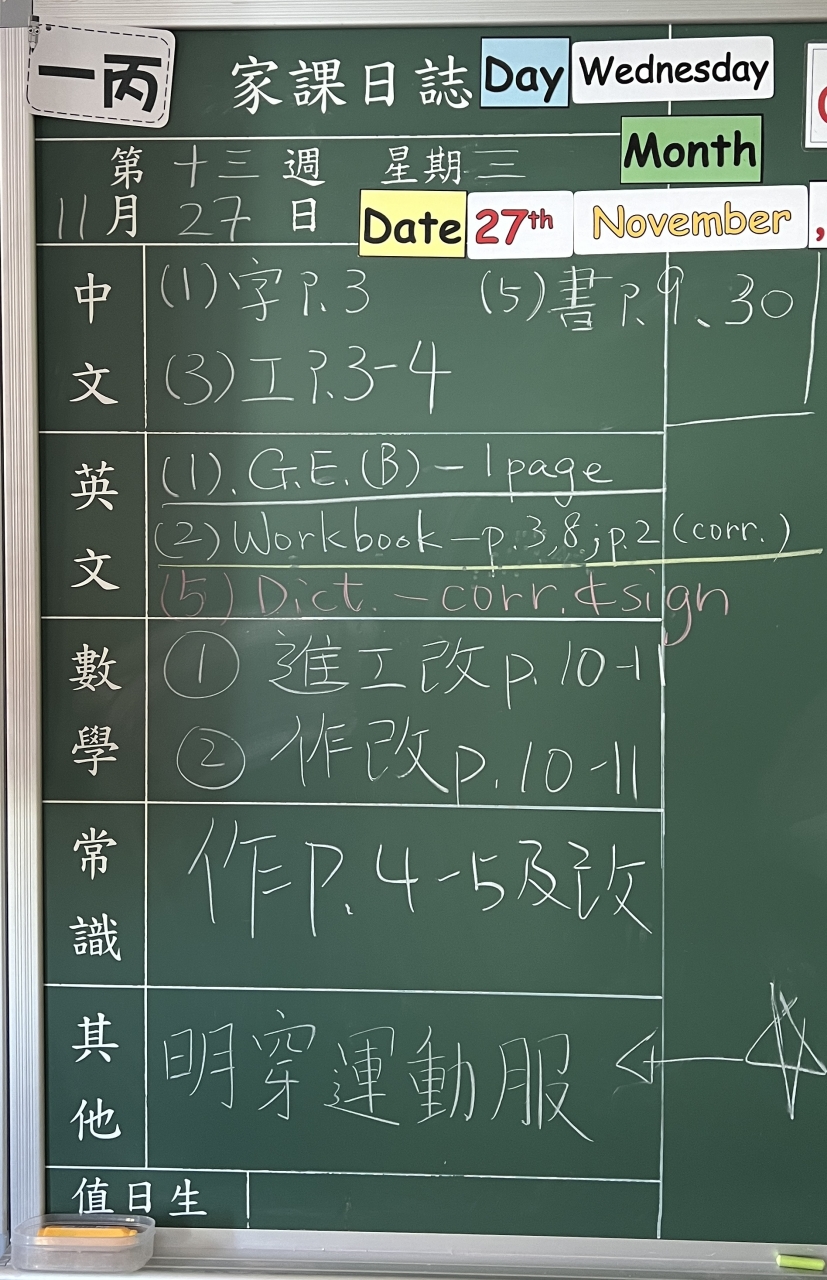 一丙
家課日誌 Day Wednesday
Month
第十三週 星期三
11月27日 Date 27th November ,
中文
(1)字P.3 (5)書P.9、30
(3)工P.3-4
英文
(1). G.E.(B)-1page
(2) Workbook-p.3,8;p.2(corr.)
(5) Dict.-corr.&sign
數學
① 進工改p.10-11
② 作改p.10-11
常識
作P.4-5及改
其他
明穿運動服
值日生